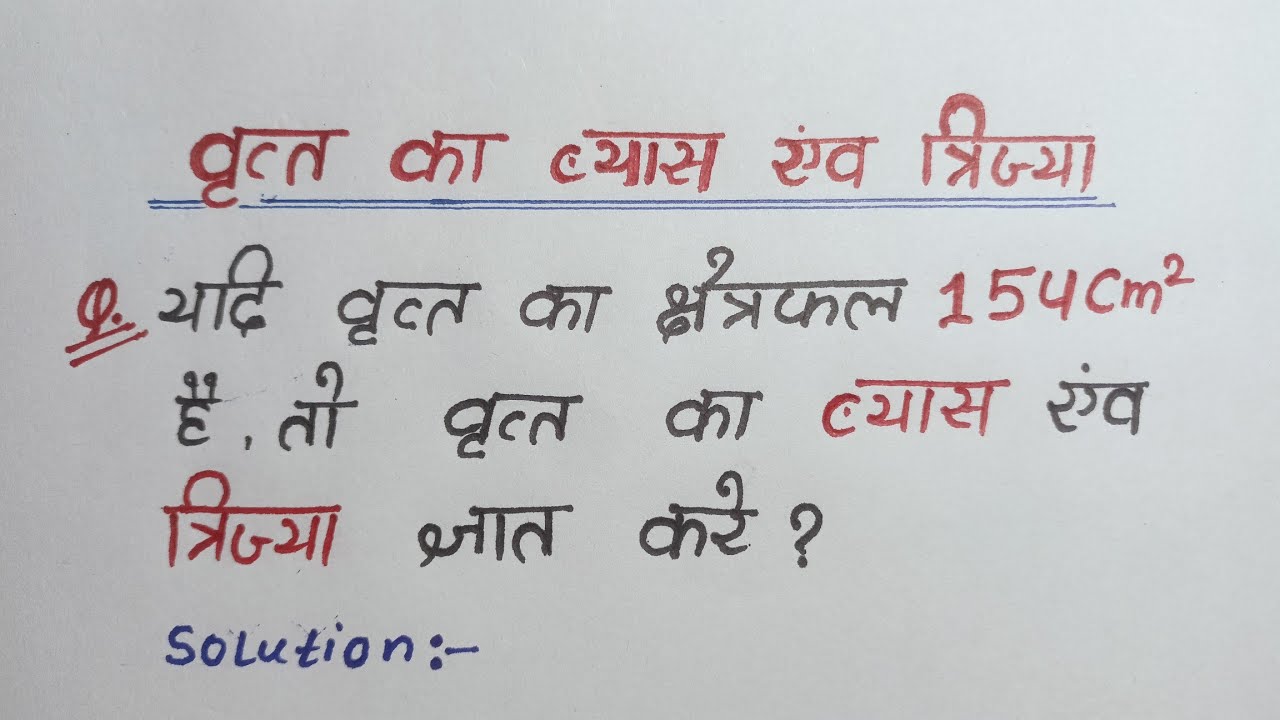 वृत्त का व्यास एंव त्रिज्या
Q. यदि वृत्त का क्षेत्रफल 154cm²
है, तो वृत्त का व्यास एंव
त्रिज्या ज्ञात करे ?
Solution:-